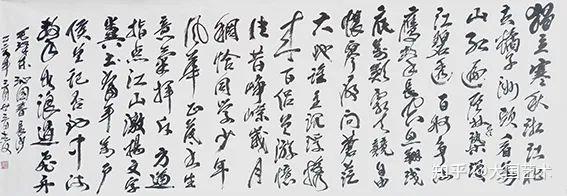 独立寒秋湘江北
去橘子洲头看万
山红遍层林尽染漫
江碧透百舸争流
鹰击长空鱼翔浅
底万类霜天竞自由
怅寥廓问苍茫
大地谁主沉浮携
来百侣曾游忆
往昔峥嵘岁月
稠恰同学少年
风华正茂书生
意气挥斥方遒
指点江山激扬文字
粪土当年万户
侯曾记否到中流
击水浪遏飞舟
毛泽东沁园春长沙
知乎 @大国艺术